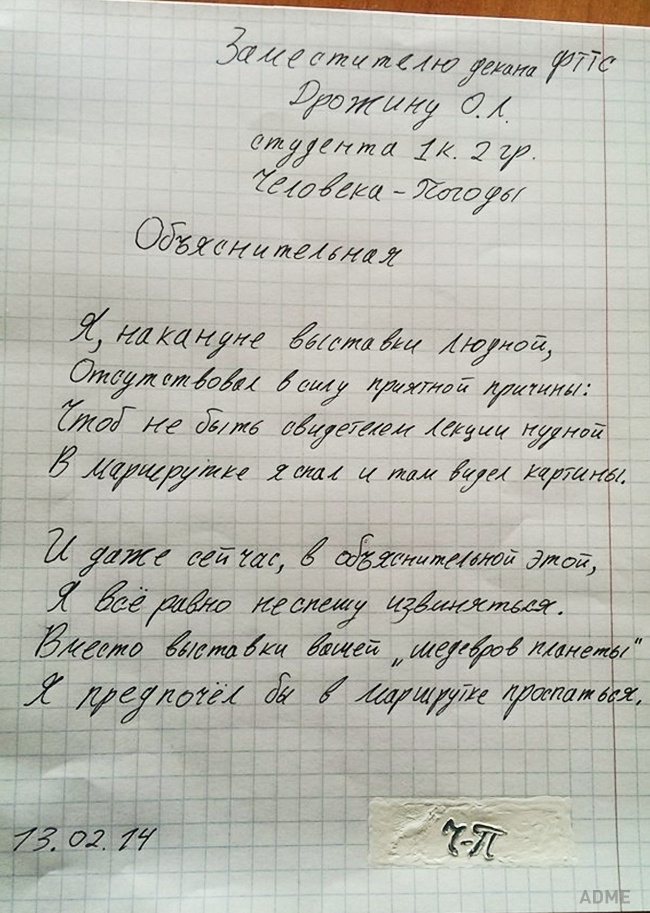 Заместителю декана ФППС
Дрожину О.Л.
студента 1к. 2 гр.
Человека-Погоды
Объяснительная
Я, накануне выставки людной,
Отсутствовал в силу приятной причины:
Чтоб не быть свидетелем лекции нудной
В маршрутке я спал и там видел картины.
И даже сейчас, в объяснительной этой,
Я всё равно не спешу извиняться.
Вместо выставки вашей „шедевров планеты"
Я предпочёл бы в маршрутке проспаться.
13.02.14
Ч-П
ADME